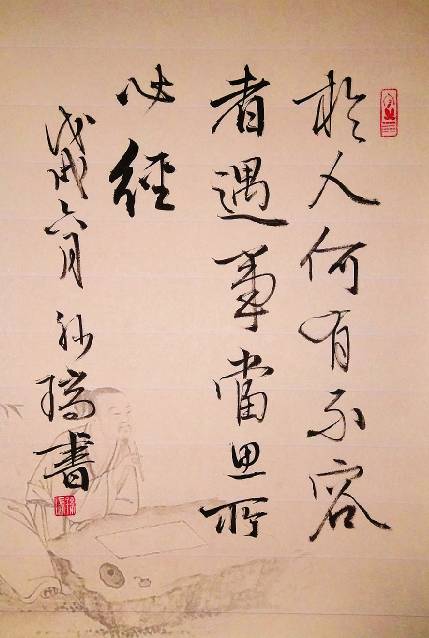 於人何有不容
者遇事當思所
必經
戊戌六月孙瑞書